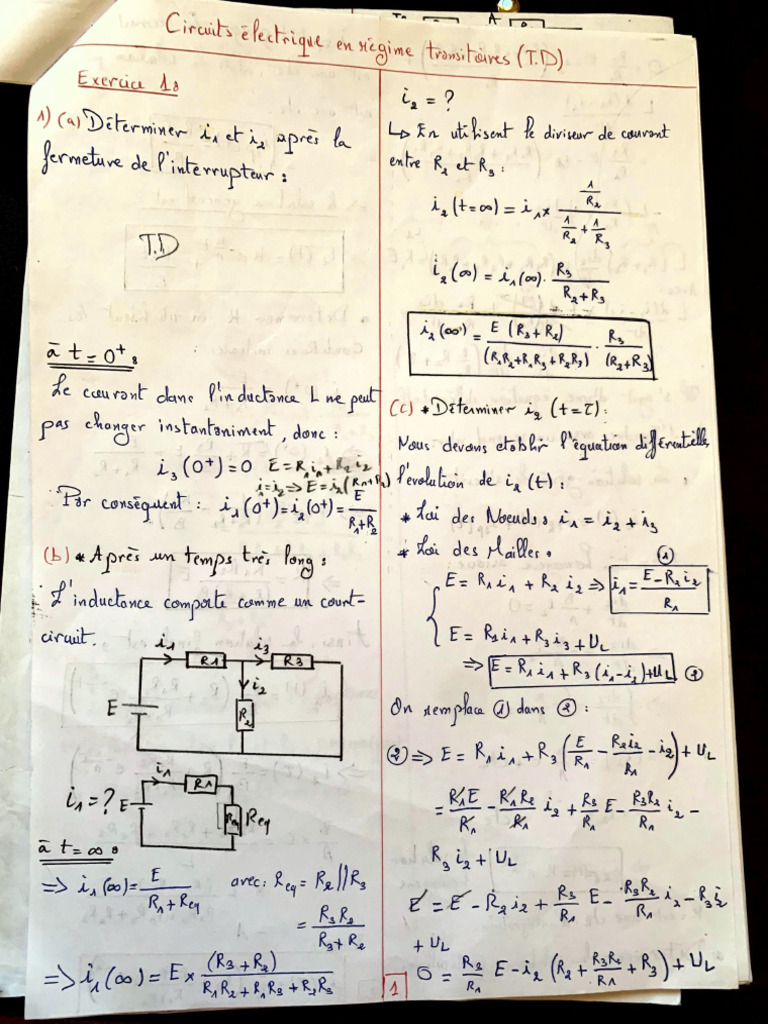 Circuits électrique en régime transitoires (T.D)
Exercice 1:
1) (a) Déterminer i₁ et i₂ après la
fermeture de l'interrupteur :
T.D
à t = 0⁺ :
Le courant dans l'inductance L ne peut
pas changer instantaniment, donc :
i₃(0⁺) = 0 E = R₁i₁ + R₂i₂
i₁ = i₂ => E = i₂(R₁+R₂)
Par conséquent : i₁(0⁺) = i₂(0⁺) = E / (R₁+R₂)
(b) * Après un temps très long :
L'inductance comporte comme un court-
circuit.
i₁ R1 i₃ R3
E i₂ R₂
i₁ R1
i₁ = ? E Req Req
à t = ∞ :
=> i₁(∞) = E / (R₁ + Req) avec : Req = R₂ // R₃
= R₃R₂ / (R₃+R₂)
=> i₁(∞) = E × (R₃+R₂) / (R₁R₂ + R₁R₃ + R₂R₃)
i₂ = ?
↳ En utilisent le diviseur de courant
entre R₂ et R₃ :
i₂(t=∞) = i₁ × (1/R₂) / (1/R₂ + 1/R₃)
i₂(∞) = i₁(∞) · R₃ / (R₂+R₃)
i₂(∞) = E (R₃+R₂) / (R₁R₂+R₁R₃+R₂R₃) · R₃ / (R₂+R₃)
(c) * Déterminer i₂ (t=τ) :
Nous devons etablir l'équation différentielle
l'évolution de i₂(t) :
* Loi des Noeuds : i₁ = i₂ + i₃
* Loi des Mailles :
E = R₁i₁ + R₂i₂ => i₁ = (E - R₂i₂) / R₁ ①
E = R₁i₁ + R₃i₃ + UL
=> E = R₁i₁ + R₃(i₁-i₂) + UL ②
On remplace ① dans ② :
② => E = R₁i₁ + R₃(E/R₁ - R₂i₂/R₁ - i₂) + UL
= R₁E/R₁ - R₁R₂/R₁ i₂ + R₃/R₁ E - R₃R₂/R₁ i₂ -
R₃i₂ + UL
E = E - R₂i₂ + R₃/R₁ E - R₃R₂/R₁ i₂ - R₃i₂
+ UL
0 = R₃/R₁ E - i₂ (R₂ + R₃R₂/R₁ + R₃) + UL
1